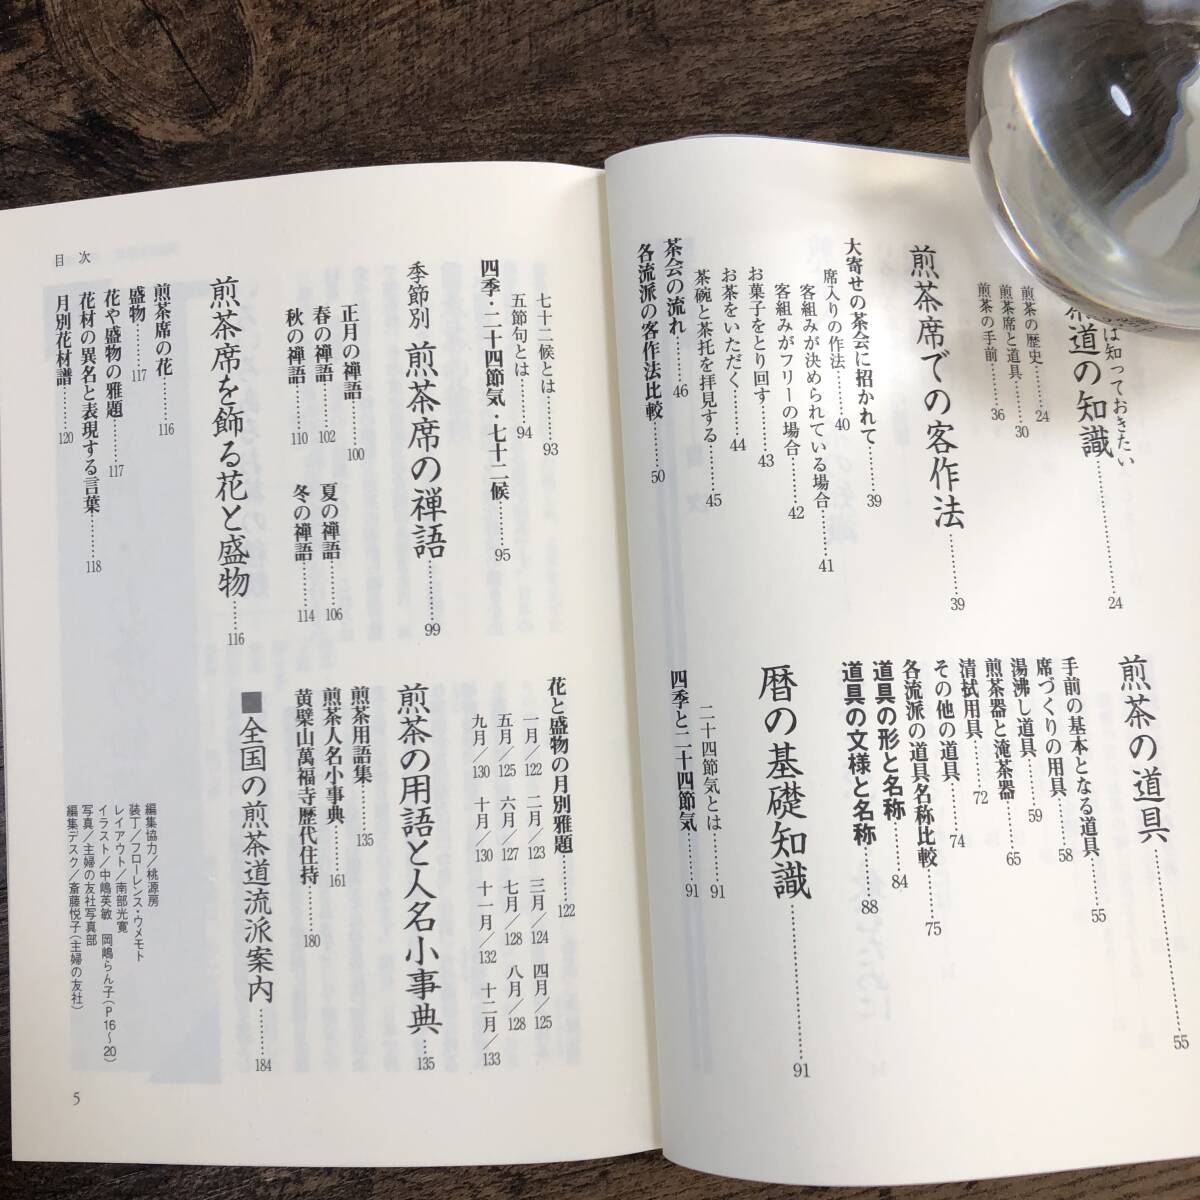 は知っておきたい
茶道の知識……24
煎茶の歴史……24
煎茶席と道具……30
煎茶の手前……36
煎茶席での客作法……39
大寄せの茶会に招かれて……39
席入りの作法……40
客組みが決められている場合……41
客組みがフリーの場合……42
お菓子をとり回す……43
お茶をいただく……44
茶碗と茶托を拝見する……45
茶会の流れ……46
各流派の客作法比較……50
煎茶の道具……55
手前の基本となる道具……55
席づくりの用具……58
湯沸し道具……59
煎茶器と滝茶器……65
清拭用具……72
その他の道具……74
各流派の道具名称比較……75
道具の形と名称……84
道具の文様と名称……88
暦の基礎知識……91
二十四節気とは……91
四季と二十四節気……91
七十二候とは……93
五節句とは……94
四季・二十四節気・七十二候……95
季節別 煎茶席の禅語……99
正月の禅語……100
春の禅語……102
夏の禅語……106
秋の禅語……110
冬の禅語……114
煎茶席を飾る花と盛物……116
煎茶席の花……116
盛物……117
花や盛物の雅題……117
花材の異名と表現する言葉……118
月別花材譜……120
花と盛物の月別雅題……122
一月/122 二月/123 三月/124 四月/125
五月/125 六月/127 七月/128 八月/128
九月/130 十月/130 十一月/132 十二月/133
煎茶の用語と人名小事典……135
煎茶用語集……135
煎茶人名小事典……161
黄檗山萬福寺歴代住持……180
■全国の煎茶道流派案内……184
編集協力/桃源房
装丁/フローレンス・ウメモト
レイアウト/南部光寛
イラスト/中嶋英敏 岡嶋らん子(P16〜20)
写真/主婦の友社写真部
編集デスク/斎藤悦子(主婦の友社)
目次
5